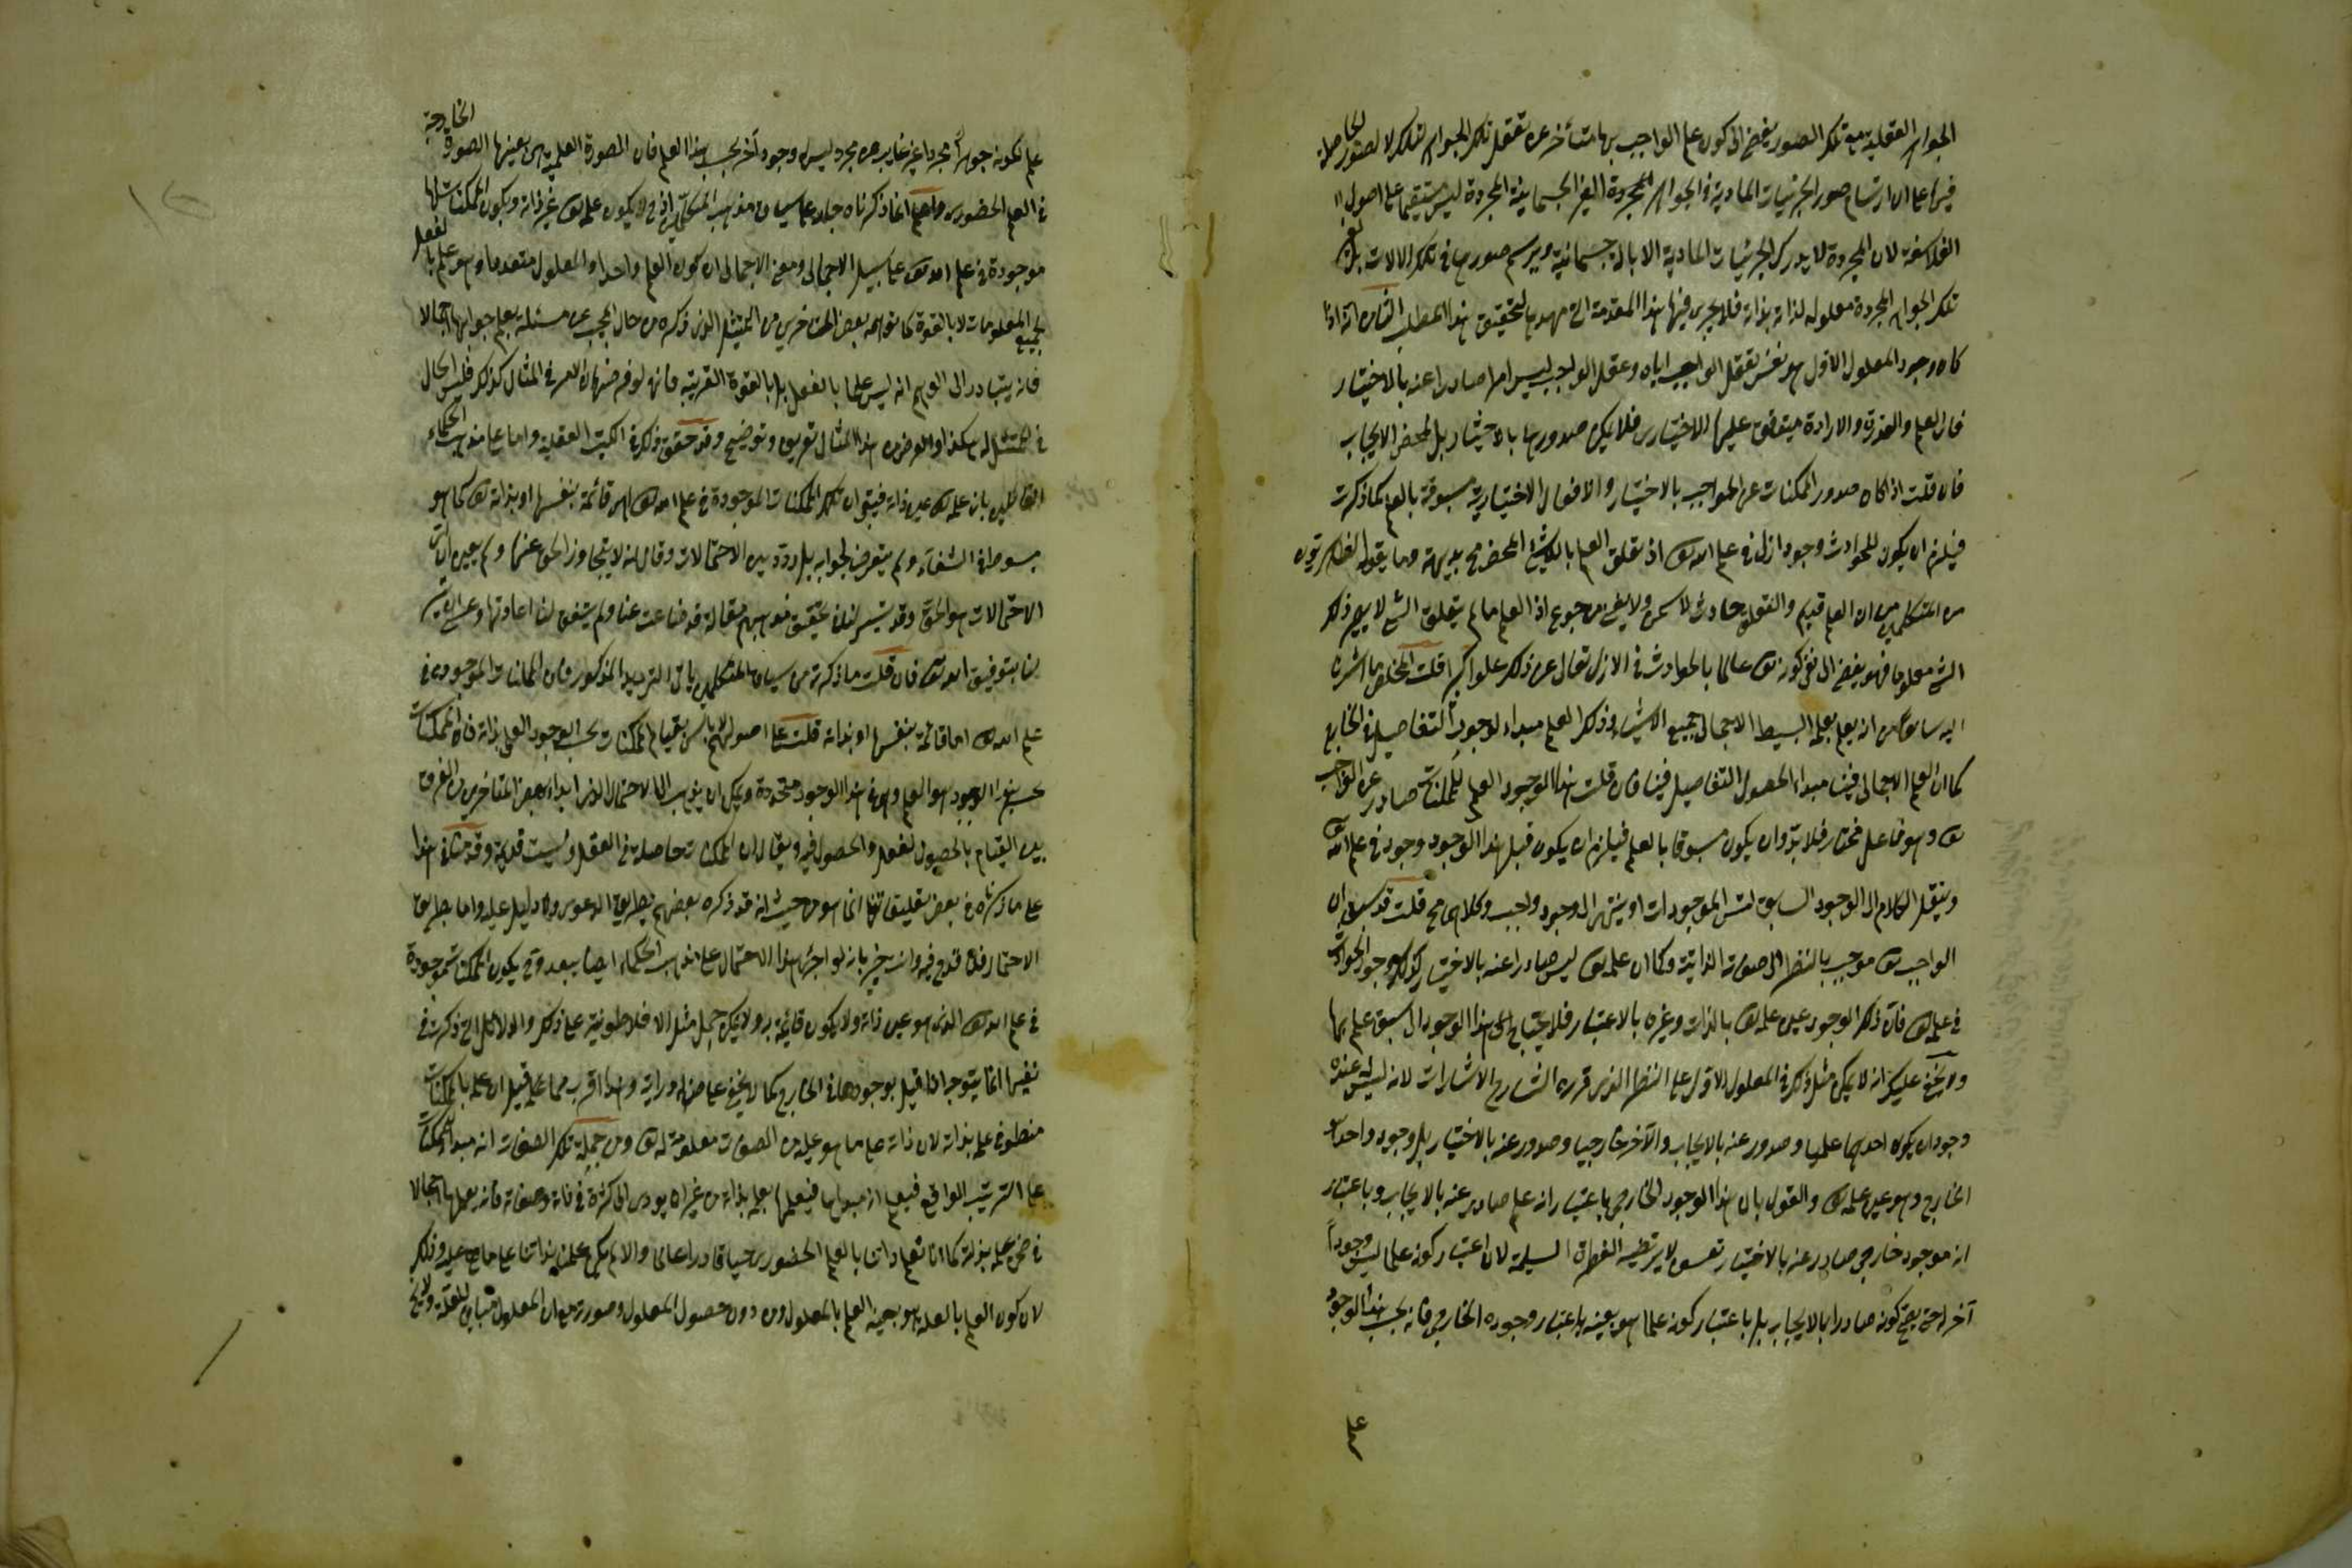 الجواهر العقلية مع تلك الصور يفضي الى كون علم الواجب بها متأخر عن تعقل تلك الجواهر لتلك الصور الحاصلة
فيها على ان ارتسام صور الجزئيات المادية في الجواهر المجردة الغير الجسمانية المجردة ليس مستقيما على اصول
الفلاسفة لان المجردة لا يدرك الجزئيات المادية الا بالة جسمانية ويرتسم صورها في تلك الالات
تلك الجواهر المجردة معلولة لذاته بذاته فلا يجري فيها هذا المقدمة التي مهدها لتحقيق هذا المطلب الثاني انه اذا
كان وجود المعلول الاول هو نفس تعقل الواجب اياه وعقل الواجب ليس امرا صادرا عنه بالاختيار
فان العلم والقدرة والارادة ميتوقف عليها الاختيار فلا يمكن صدورها بالاختيار بل لمحض الايجاب
فان قلت اذا كان صدور الممكنات عن الواجب بالاختيار والافعال الاختيارية مسبوقة بالعلم كما ذكرت
فيلزم ان يكون للحوادث وجود ازلي في علم الله تعالى اذ تعلق العلم باللاشئ المحض محال بديهة وما يقوله الظاهريون
من المتكلمين من ان العلم قديم والتعلق حادث لا يسمن ولا يغني من جوع اذ العلم ما لم يتعلق بالشئ لا يصير ذلك
الشئ معلوما فهو يفضي الى نفي كونه تعالى عالما بالحوادث في الازل تعالى عن ذلك علوا كبيرا قلت المخلص ما اشرنا
اليه سابقا من انه يعلم بعلمه البسيط الاجمالي جميع الاشياء وذلك العلم مبدأ لوجود التفاصيل في الخارج
كما ان العلم الاجمالي فينا مبدأ لحصول التفاصيل فينا فان قلت هذا الوجود العلمي للممكنات صادر عن الواجب
تعالى وهو فاعل مختار فلا بد وان يكون مسبوقا بالعلم فيلزم ان يكون قبل هذا الوجود وجود في علم الله
وينقل الكلام الى الوجود السابق لتس الموجودات او ينتهي الى وجود واجب وكلاهما مح قلت قد سبق ان
الواجب تعالى موجب بالنظر الى صفاته الذاتية وكما ان علمه تعالى ليس صادرا عنه بالاختيار كذلك وجود الحوادث
في علمه تعالى فان ذلك الوجود عين علمه تعالى بالذات وغيره بالاعتبار فلا يحتاج الى هذا الوجود الى سبق علم بها
ولا يخفى عليك انه لا يمكن مثل ذلك في المعلول الاول على النظر الذي قرره الشارح الاشارات لانه ليس له عنده
وجودان يكون احدهما علميا وصدوره عنه بالايجاب والآخر خارجيا وصدوره عنه بالاختيار بل وجوده واحد
الخارج وهو عين علمه تعالى والقول بان هذا الوجود الخارجي باعتبار انه علم صادر عنه بالايجاب وباعتبار
انه موجود خارجي صادر عنه بالاختيار تعسف لا يرتضيه الفطرة السليمة لان اعتبار كونه علما ليس وجوداً
آخر له حتى يصح كونه صادرا بالايجاب بل باعتبار كونه علما هو بعينه باعتبار وجوده الخارجي فانه بحسب هذا الوجود
علم
علم لكونه جوهرا مجردا غير غايب عن مجرد ليس وجود آخر بحسب هذا العلم فان الصورة العلمية هي بعينها الصورة الخارجية
في العلم الحضوري واعلم انما ذكرناه جار على سياق مذهب المتكلمين اذ ح لا يكون علمه تعالى غير ذاته ويكون الممكنات كلها
موجودة في علم الله تعالى على سبيل الاجمال ومعنى الاجمال ان كون العلم واحدا والمعلول متعددا وهو علم بالفعل
بجميع المعلومات لا بالقوة كما توهمه بعض المتاخرين من التمثيل الذي ذكره من حال المجيب عن مسئلة يعلم جوابها اجمالا
فانه يتبادر الى الوهم انه ليس علما بالفعل بل بالقوة القريبة فانه لو فرضنا ان الامر في المثال كذلك فليس الحال
في الممثل له هكذا والغرض من هذا المثال تقريب وتوضيح وقد حقق ذلك في الكتب العقلية واما على مذهب الحكماء
القائلين بان علمه تعالى عين ذاته فيبقى ان تلك الممكنات الموجودة في علم الله تعالى هي قائمة بنفسها او بذاته تعالى كما هو
مبسوط في الشفاء ولم يتعرض لجوابه بل ردد بين الاحتمالات وقال انه لا يتجاوز الحق عنها ولم يعين ان اي
الاحتمالات هو الحق وقد تيسر لنا في تحقيق مذهبهم مقالة قد ضاعت عنا ولم يتفق لنا اعادتها وعسى ان
لنا بتوفيق الله تعالى فان قلت ما ذكرته من سياق المتكلمين ياتى الترديد المذكور فان الممكنات الموجودة في
علم الله تعالى اما قائمة بنفسها او بذاته قلت على اصولهم لا باس بقيام الممكنات بحسب الوجود العلمي بذاته فان الممكنات
بحسب هذا الوجود هو العلم وهي في هذا الوجود متحدة ويمكن ان يذهب الى الاحتمال الذي ابداه بعض المتاخرين من الفرق
بين القيام بالحصول للعقل والحصول فيه ويقال ان الممكنات حاصلة في العقل وليست قائمة به وقد مثله هذا
على ما ذكرناه في بعض تعليقاتنا انما هو من حيث انه قد ذكره بعضهم بطريق الدعوى ولا دليل عليه واما بطريق
الاحتمال فلا قدح فيه وانت خبير بانه لو اجرى هذا الاحتمال على مذهب الحكماء ايضا لم يبعد وح يكون الممكنات موجودة
في علم الله تعالى الذي هو عين ذاته ولا يكون قائمة به ولا يمكن حمل مثل الافلاطونية على ذلك والدلائل التي ذكرت في
نفيها انما يتوجه اذا قيل بوجودها في الخارج كما لا يخفى على من له دراية وهذا اقرب مما قيل ان علمه بالممكنات
منطو في علمه بذاته لان ذاته على ما هو عليه من الصفات معلومة له تعالى ومن جملة تلك الصفات انه مبدأ للممكنات
على الترتيب الواقع فيعلم انه مبدأ لها فيعلمها بعلمه بذاته من غير ان يودى الى كثرة في ذاته وصفاته فانه يعلمها اجمالا
في ضمن علمه بذاته كما انا نعلم ذاتنا بالعلم الحضوري حيا قادرا عالما والا لم يكن علمنا بذاتنا على ما هي عليه وذلك
لان كون العلم بالعلة هو بعينه العلم بالمعلول من دون حصول المعلول وصورته مع ان المعلول مباين للعلة